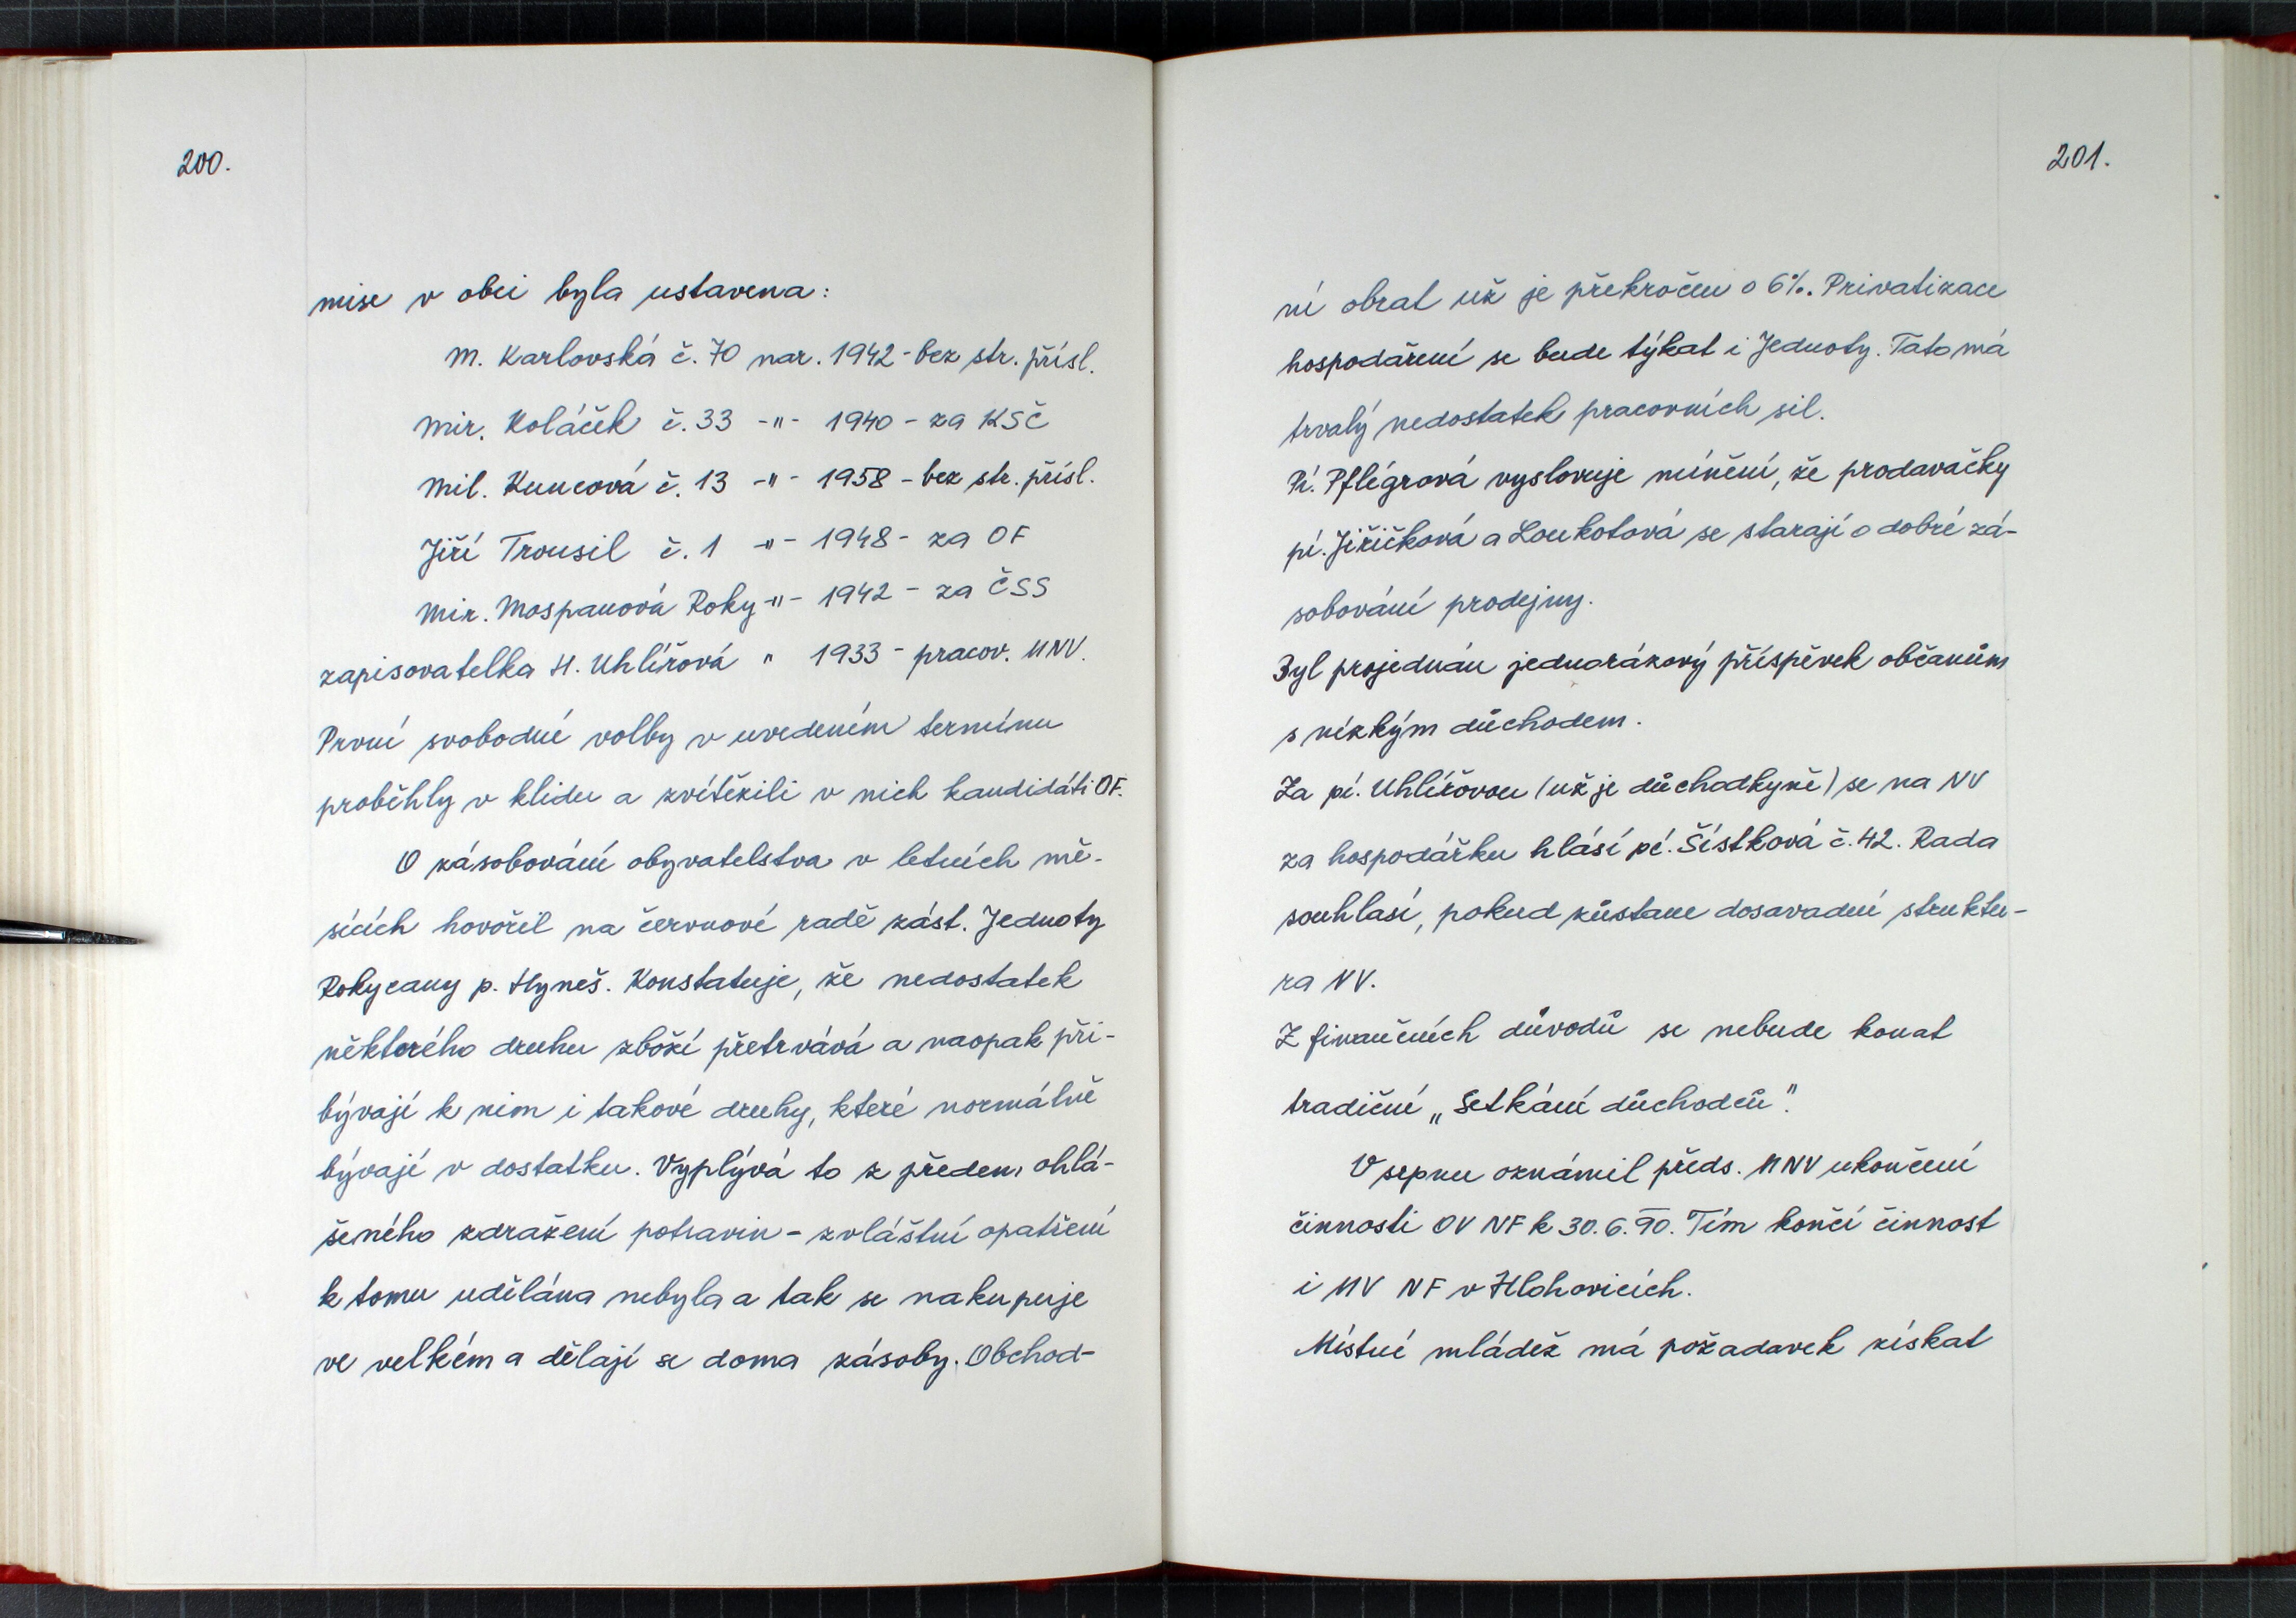 200.
mise v obci byla ustavena:
M. Karlovská č. 70 nar. 1942 - bez str. přísl.
Mir. Koláček č. 33 -"- 1940 - za KSČ
Mil. Kuncová č. 13 -"- 1958 - bez str. přísl.
Jiří Trousil č. 1 -"- 1948 - za OF
Mir. Mospanová Roky -"- 1942 - za ČSS
zapisovatelka H. Uhlířová " 1933 - pracov. MNV.
První svobodné volby v uvedeném termínu
proběhly v klidu a zvítězili v nich kandidáti OF.
O zásobování obyvatelstva v letních mě-
sících hovořil na červnové radě zást. Jednoty
Rokycany p. Hyneš. Konstatuje, že nedostatek
některého druhu zboží přetrvává a naopak při-
bývají k nim i takové druhy, které normálně
bývají v dostatku. Vyplývá to z předem ohlá-
šeného zdražení potravin - zvláštní opatření
k tomu udělána nebyla a tak se nakupuje
ve velkém a dělají se doma zásoby. Obchod-
201.
ní obrat už je překročen o 6%. Privatizace
hospodaření se bude týkat i Jednoty. Tato má
trvalý nedostatek pracovních sil.
Pí. Pflégrová vyslovuje mínění, že prodavačky
pí. Jiřičková a Loukotová se starají o dobré zá-
sobování prodejny.
Byl projednán jednorázový příspěvek občanům
s nízkým důchodem.
Za pí. Uhlířovou (už je důchodkyně) se na NV
za hospodářku hlásí pí. Šístková č. 42. Rada
souhlasí, pokud zůstane dosavadní struktu-
ra NV.
Z finančních důvodů se nebude konat
tradiční „Setkání důchodců".
V srpnu oznámil předs. MNV ukončení
činnosti OV NF k 30. 6. 90. Tím končí činnost
i MV NF v Hlohovicích.
Místní mládež má požadavek získat